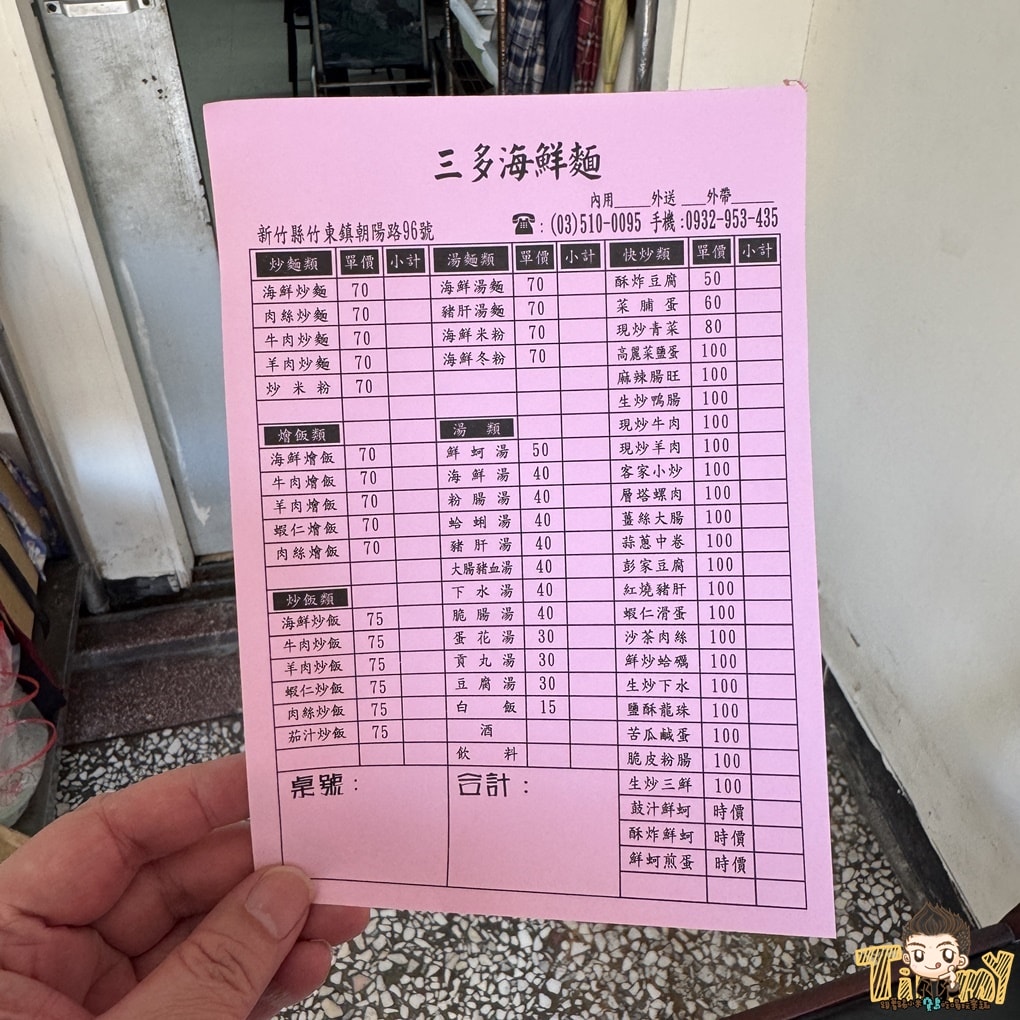 三多海鮮麵
內用____外送____外帶____
新竹縣竹東鎮朝陽路96號 ☎:(03)510-0095 手機:0932-953-435
炒麵類 單價 小計 湯麵類 單價 小計 快炒類 單價 小計
海鮮炒麵 70 海鮮湯麵 70 酥炸豆腐 50
肉絲炒麵 70 豬肝湯麵 70 菜脯蛋 60
牛肉炒麵 70 海鮮米粉 70 現炒青菜 80
羊肉炒麵 70 海鮮冬粉 70 高麗菜鹽蛋 100
炒米粉 70 麻辣腸旺 100
生炒鴨腸 100
燴飯類 湯類 現炒牛肉 100
海鮮燴飯 70 鮮蚵湯 50 現炒羊肉 100
牛肉燴飯 70 海鮮湯 40 客家小炒 100
羊肉燴飯 70 粉腸湯 40 層塔螺肉 100
蝦仁燴飯 70 蛤蜊湯 40 薑絲大腸 100
肉絲燴飯 70 豬肝湯 40 蒜蔥中卷 100
大腸豬血湯 40 彭家豆腐 100
炒飯類 下水湯 40 紅燒豬肝 100
海鮮炒飯 75 脆腸湯 40 蝦仁滑蛋 100
牛肉炒飯 75 蛋花湯 30 沙茶肉絲 100
羊肉炒飯 75 貢丸湯 30 鮮炒蛤蠣 100
蝦仁炒飯 75 豆腐湯 30 生炒下水 100
肉絲炒飯 75 白飯 15 鹽酥龍珠 100
茄汁炒飯 75 酒 苦瓜鹹蛋 100
飲料 脆皮粉腸 100
桌號: 合計: 生炒三鮮 100
鼓汁鮮蚵 時價
酥炸鮮蚵 時價
鮮蚵煎蛋 時價
Timmy